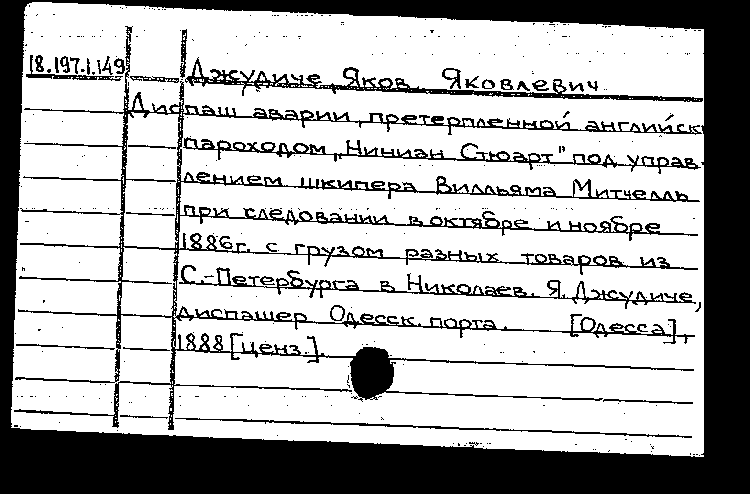 18.197.1.149 Джудиче, Яков Яковлевич
Диспаш аварии, претерпленной английск
пароходом „Ниниан Стюарт" под управ-
лением шкипера Вилльяма Митчелль
при следовании в октябре и ноябре
1886г. с грузом разных товаров из
С.-Петербурга в Николаев. Я. Джудиче,
диспашер Одесск. порта. [Одесса],
1888 [ценз.].